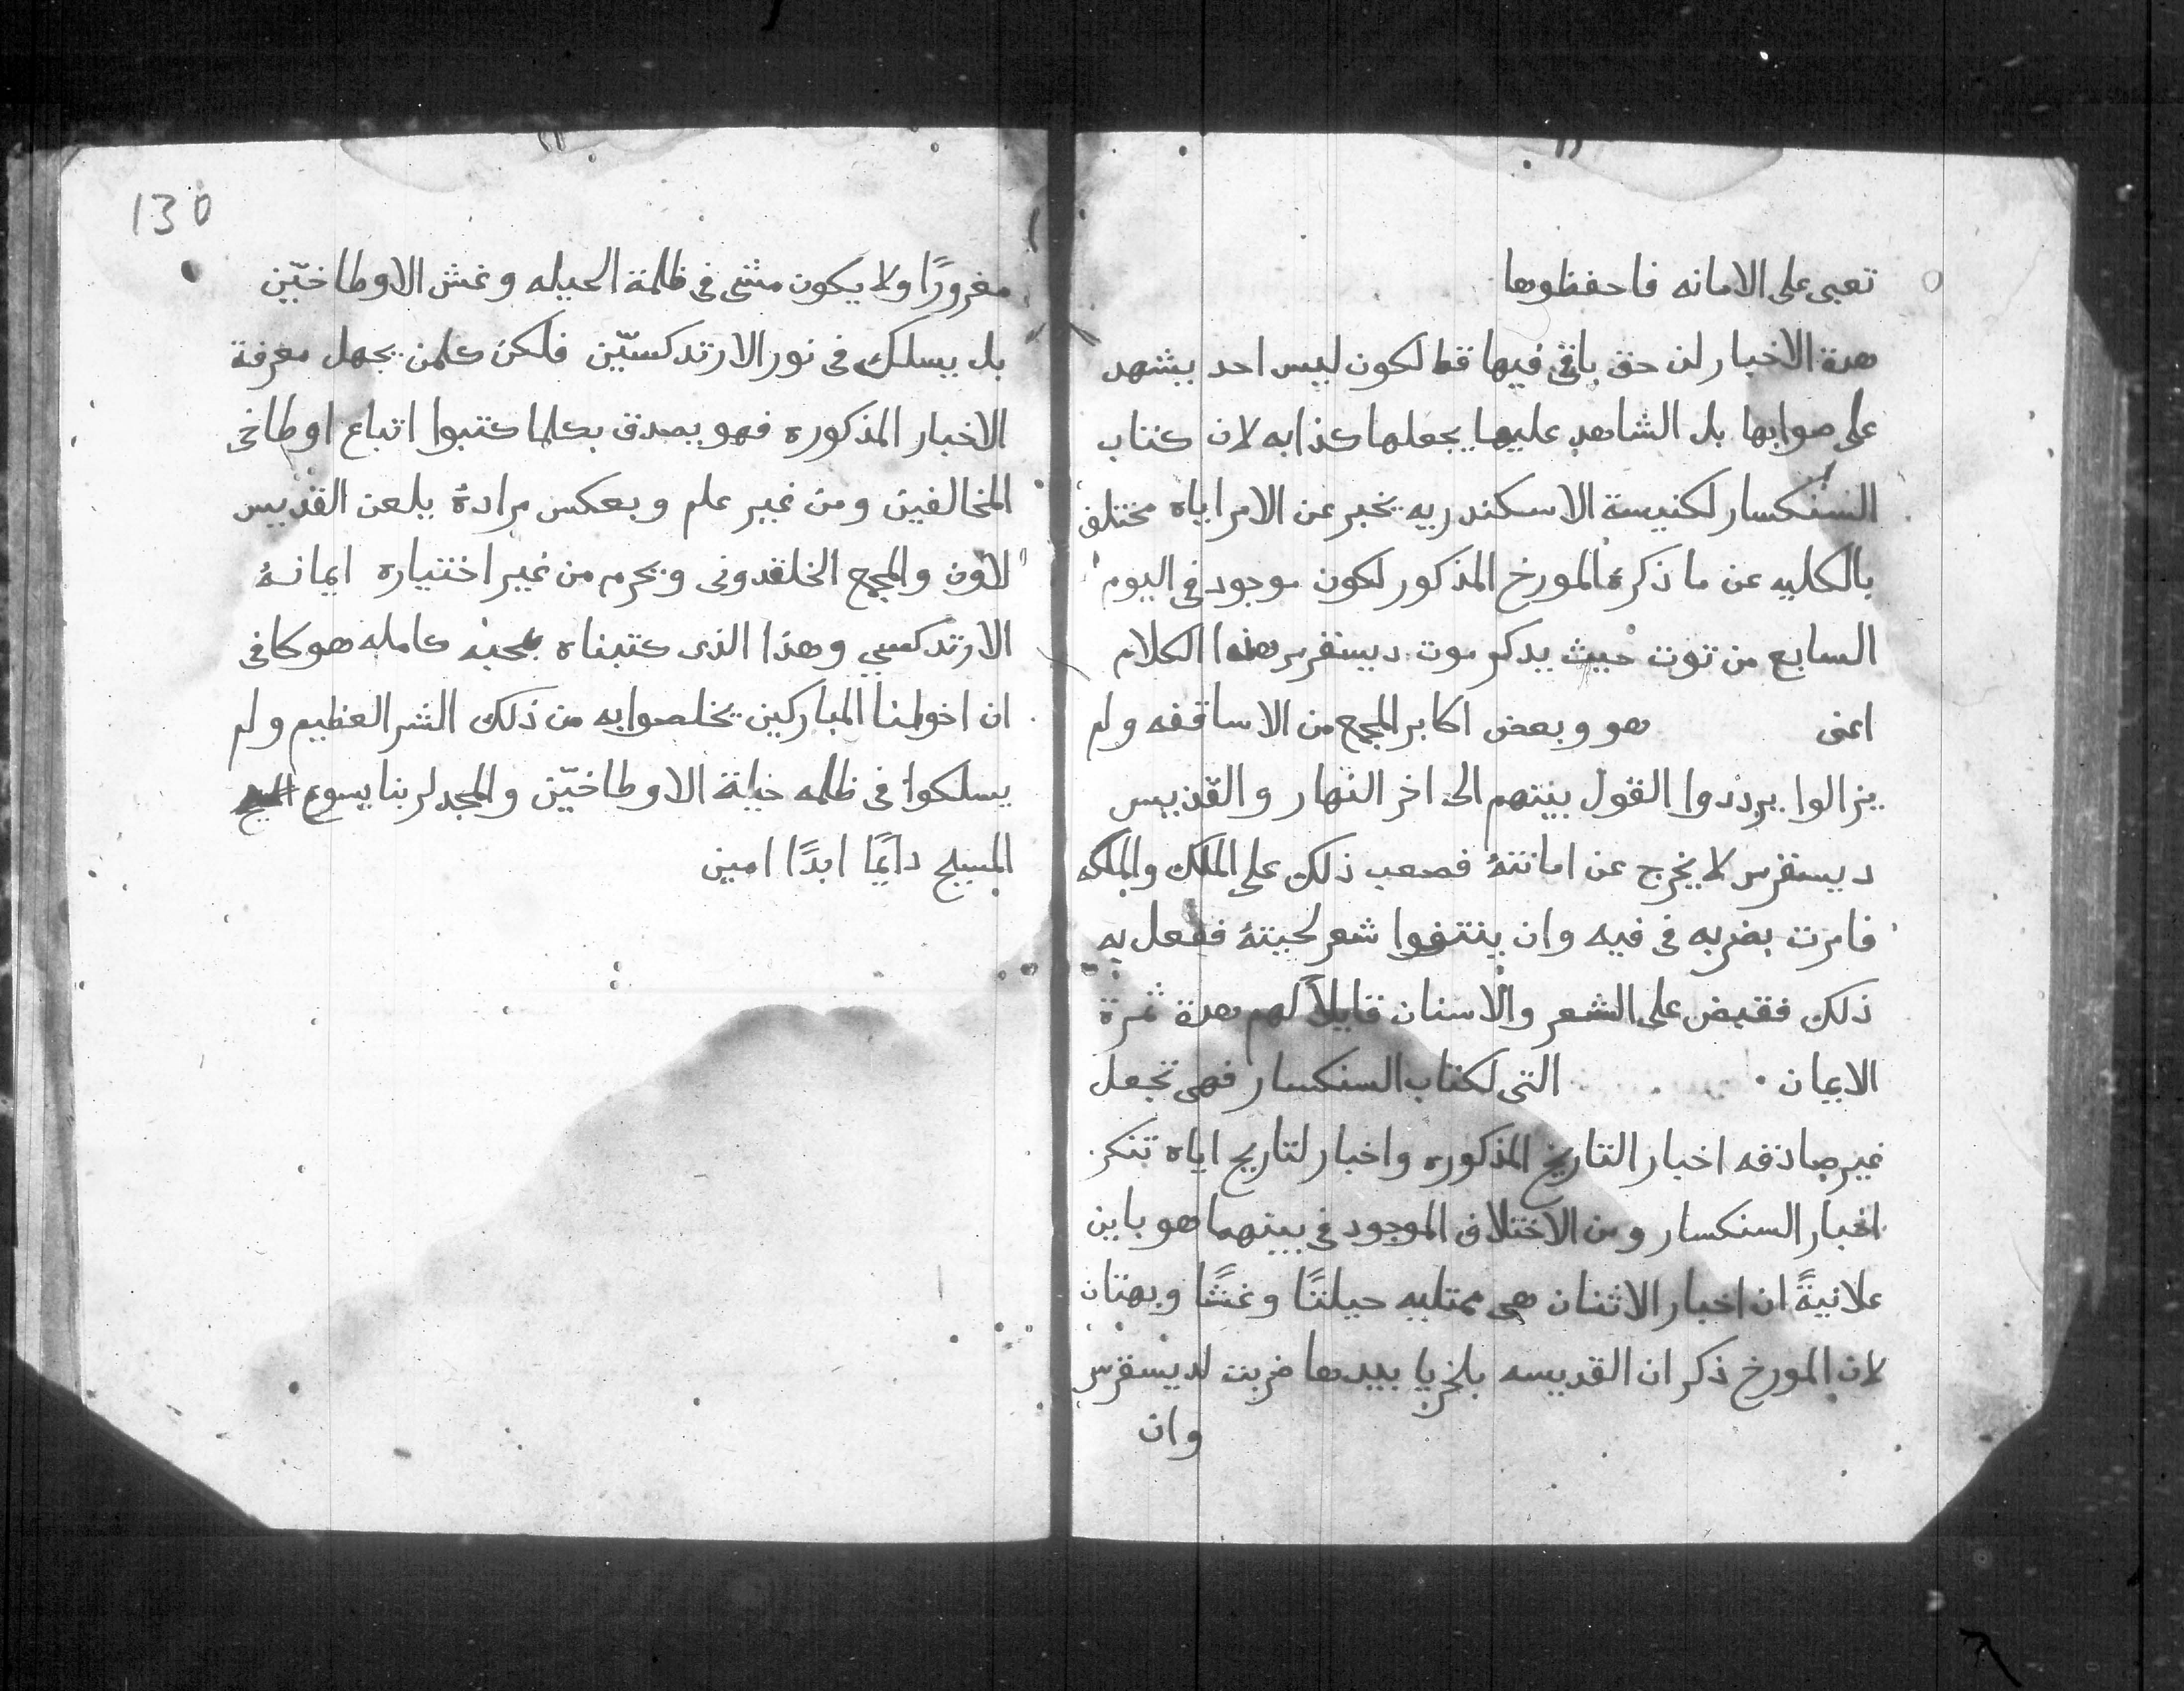 تعبى على الامانه فاحفظوها
هدة الاخبار لن حق باقى فيها قط لكون ليس احد يشهد
على صوابها بل الشاهد عليها يجعلها كذابه لان كتاب
السنكسار لكنيسة الاسكندريه يخبر عن الامر اياه مختلف
بالكليه عن ما ذكرة المورخ المذكور لكون موجود في اليوم
السابع من توت حيث يدكر موت ديسقرس هذا الكلام
اعنى هو وبعض اكابر المجمع من الاساقفه ولم
يزالوا يرددوا القول بينتهم الى اخر النهار والقديس
ديسقرس لا يخرج عن امانتهُ فصعب ذلك على الملك والملكه
فامرت بضربه في فيه وان ينتفوا شعر لحيتهُ ففعل به
ذلك فقبض على الشعر والاسنان قايلاً لهم هدة ثمرة
الايمان التى لكتاب السنكسار فهى تجعل
غير صادقه اخبار التاريخ المذكوره واخبار لتاريخ اياه تنكر
اخبار السنكسار ومن الاختلاف الموجود في بينهما هو باين
علانيةً ان اخبار الاثنان هى ممتليه حيلتًا وغشًا وبهتان
لان المورخ ذكر ان القديسه بلخريا بيدها ضربت لديسقرس
وان
130
مغرورًا ولا يكون مشى في ظلمة الحيله وغش الاوطاخيّين
بل يسلك في نور الارتدكسيّين فلكن كلمن يجهل معرفة
الاخبار المذكوره فهو يصدق بكلما كتبوا اتباع اوطاخى
المخالفين ومن غير علم وبعكس مرادهُ يلعن القديس
لاون والمجمع الخلقدونى ويحرم من غير اختياره ايمانهُ
الارتدكسي وهذا الذى كتبناه بمحبه كامله هو كافى
ان اخوتنا المباركين يخلصوا به من ذلك الشر العظيم ولم
يسلكوا في ظلمه حيلة الاوطاخيّين والمجد لربنا يسوع
المسيح دايمًا ابدًا امين